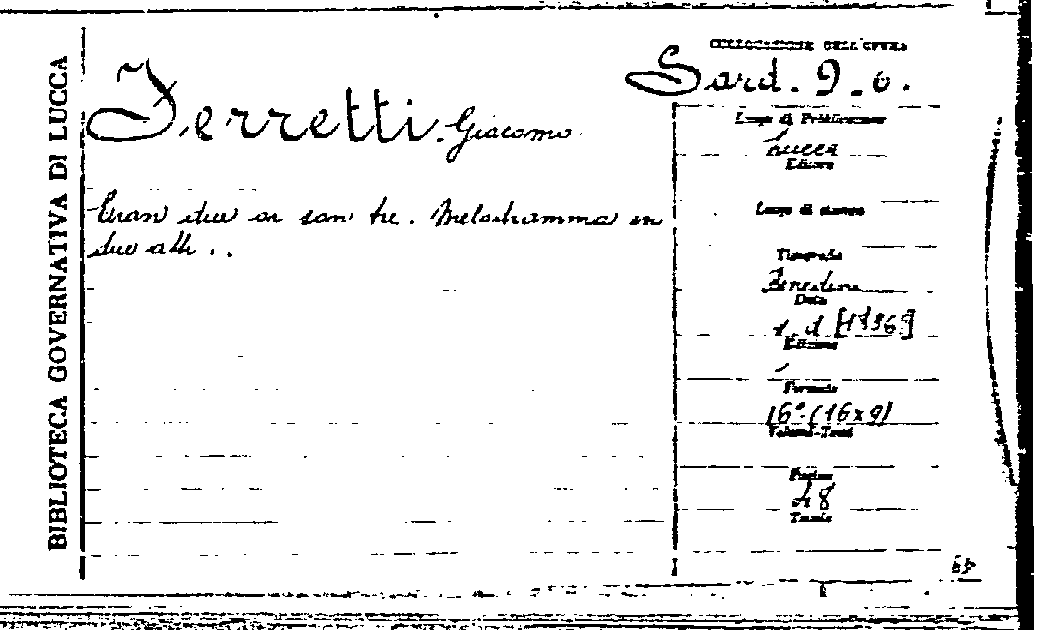 BIBLIOTECA GOVERNATIVA DI LUCCA
COLLOCAZIONE DELL'OPERA
Sard. 9. 6.
Ferretti Giacomo
Eran due or son tre. Melodramma in
due atti . .
Luogo di Pubblicazione
Lucca
Editore
Luogo di stampa
Tipografia
Data
s. d. [1836]
Edizione
Formato
16° (16x9)
Volumi-Tomi
Pagine
48
Tavole